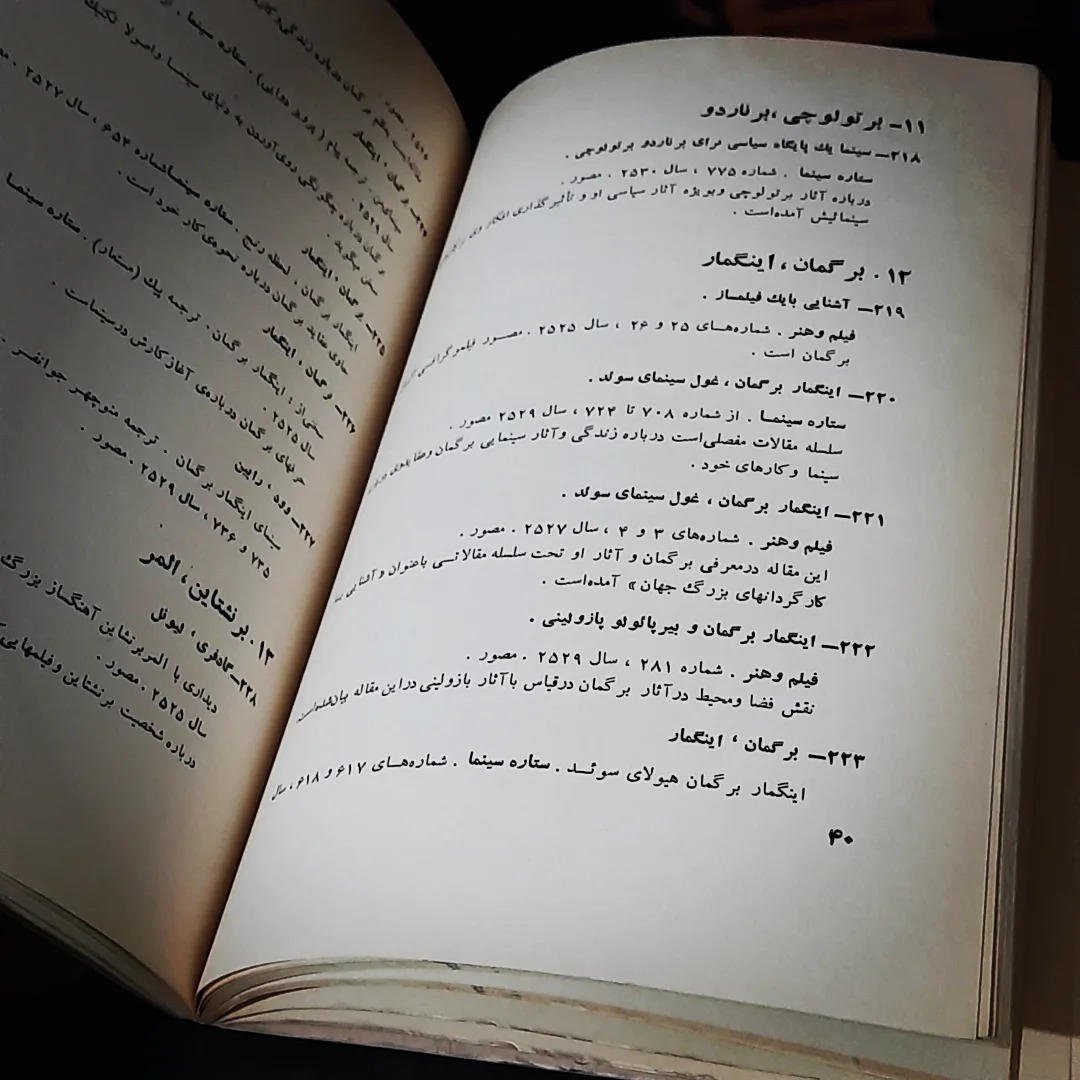 ۱۱- برتولوچی ،برناردو
۲۱۸— سینما یك پایگاه سیاسی برای برناردو برتولوچی .
ستاره سینما . شماره ۷۷۵ ، سال ۲۵۳۰ . مصور .
درباره آثار برتولوچی وبویژه آثار سیاسی او و تأثیرگذاری افکار وی
سینمائیش آمده‌است .
۱۲ . برگمان ، اینگمار
۲۱۹— آشنایی بایك فیلمساز .
فیلم وهنر . شماره‌های ۲۵ و ۲۶ ، سال ۲۵۲۵ . مصور فیلموگرافی
برگمان است .
۲۲۰— اینگمار برگمان ، غول سینمای سوئد .
ستاره سینما . از شماره ۷۰۸ تا ۷۲۴ ، سال ۲۵۲۹ مصور .
سلسله مقالات مفصلی‌است درباره زندگی وآثار سینمایی برگمان وعقایدوی
سینما وکارهای خود .
۲۲۱— اینگمار برگمان ، غول سینمای سوئد .
فیلم وهنر . شماره‌های ۳ و ۴ ، سال ۲۵۲۷ . مصور .
این مقاله درمعرفی برگمان و آثار او تحت سلسله مقالاتی باعنوان « آشنایی
کارگردانهای بزرگ جهان » آمده‌است .
۲۲۲— اینگمار برگمان و پیرپائولو پازولینی .
فیلم وهنر . شماره ۲۸۱ ، سال ۲۵۲۹ . مصور .
نقش فضا ومحیط درآثار برگمان درقیاس باآثار بازولینی دراین مقاله بیان‌شده‌است.
۲۲۳— برگمان ، اینگمار
اینگمار برگمان هیولای سوئد . ستاره سینما . شماره‌های ۶۱۷ و ۶۱۸ ، سال
۴۰
۲۵۲۹ .
برگمان درباره چگونگی روی‌آوردن به دنیای سینما واصولا تکنیك
سخن میگوید .
۲۲۵— برگمان ، اینگمار
اینگمار برگمان ، لحظه رنج . ستاره سینماشماره ۶۵۴ ، سال ۲۵۲۷ .
حاوی عقاید برگمان درباره نحوه‌ی کار خود است .
۲۲۶— برگمان ، اینگمار
سخنی‌از : اینگمار برگمان . ترجمه پیك (مستعار) . ستاره سینما
سال ۲۵۲۵ .
حرفهای برگمان درباره‌ی آغاز کارش درسینماست .
۲۲۷— وود ، رابین
سینمای اینگمار برگمان . ترجمه منوچهر جوانفر .
۷۳۵ و ۷۳۶ ، سال ۲۵۲۹ . مصور .
۱۳ . برنشتاین ، المر
۲۲۸— گادفری ، لیونل
دیداری با المربرنشتاین آهنگساز بزرگ
سال ۲۵۲۵ . مصور .
درباره شخصیت برنشتاین وفیلمهایی